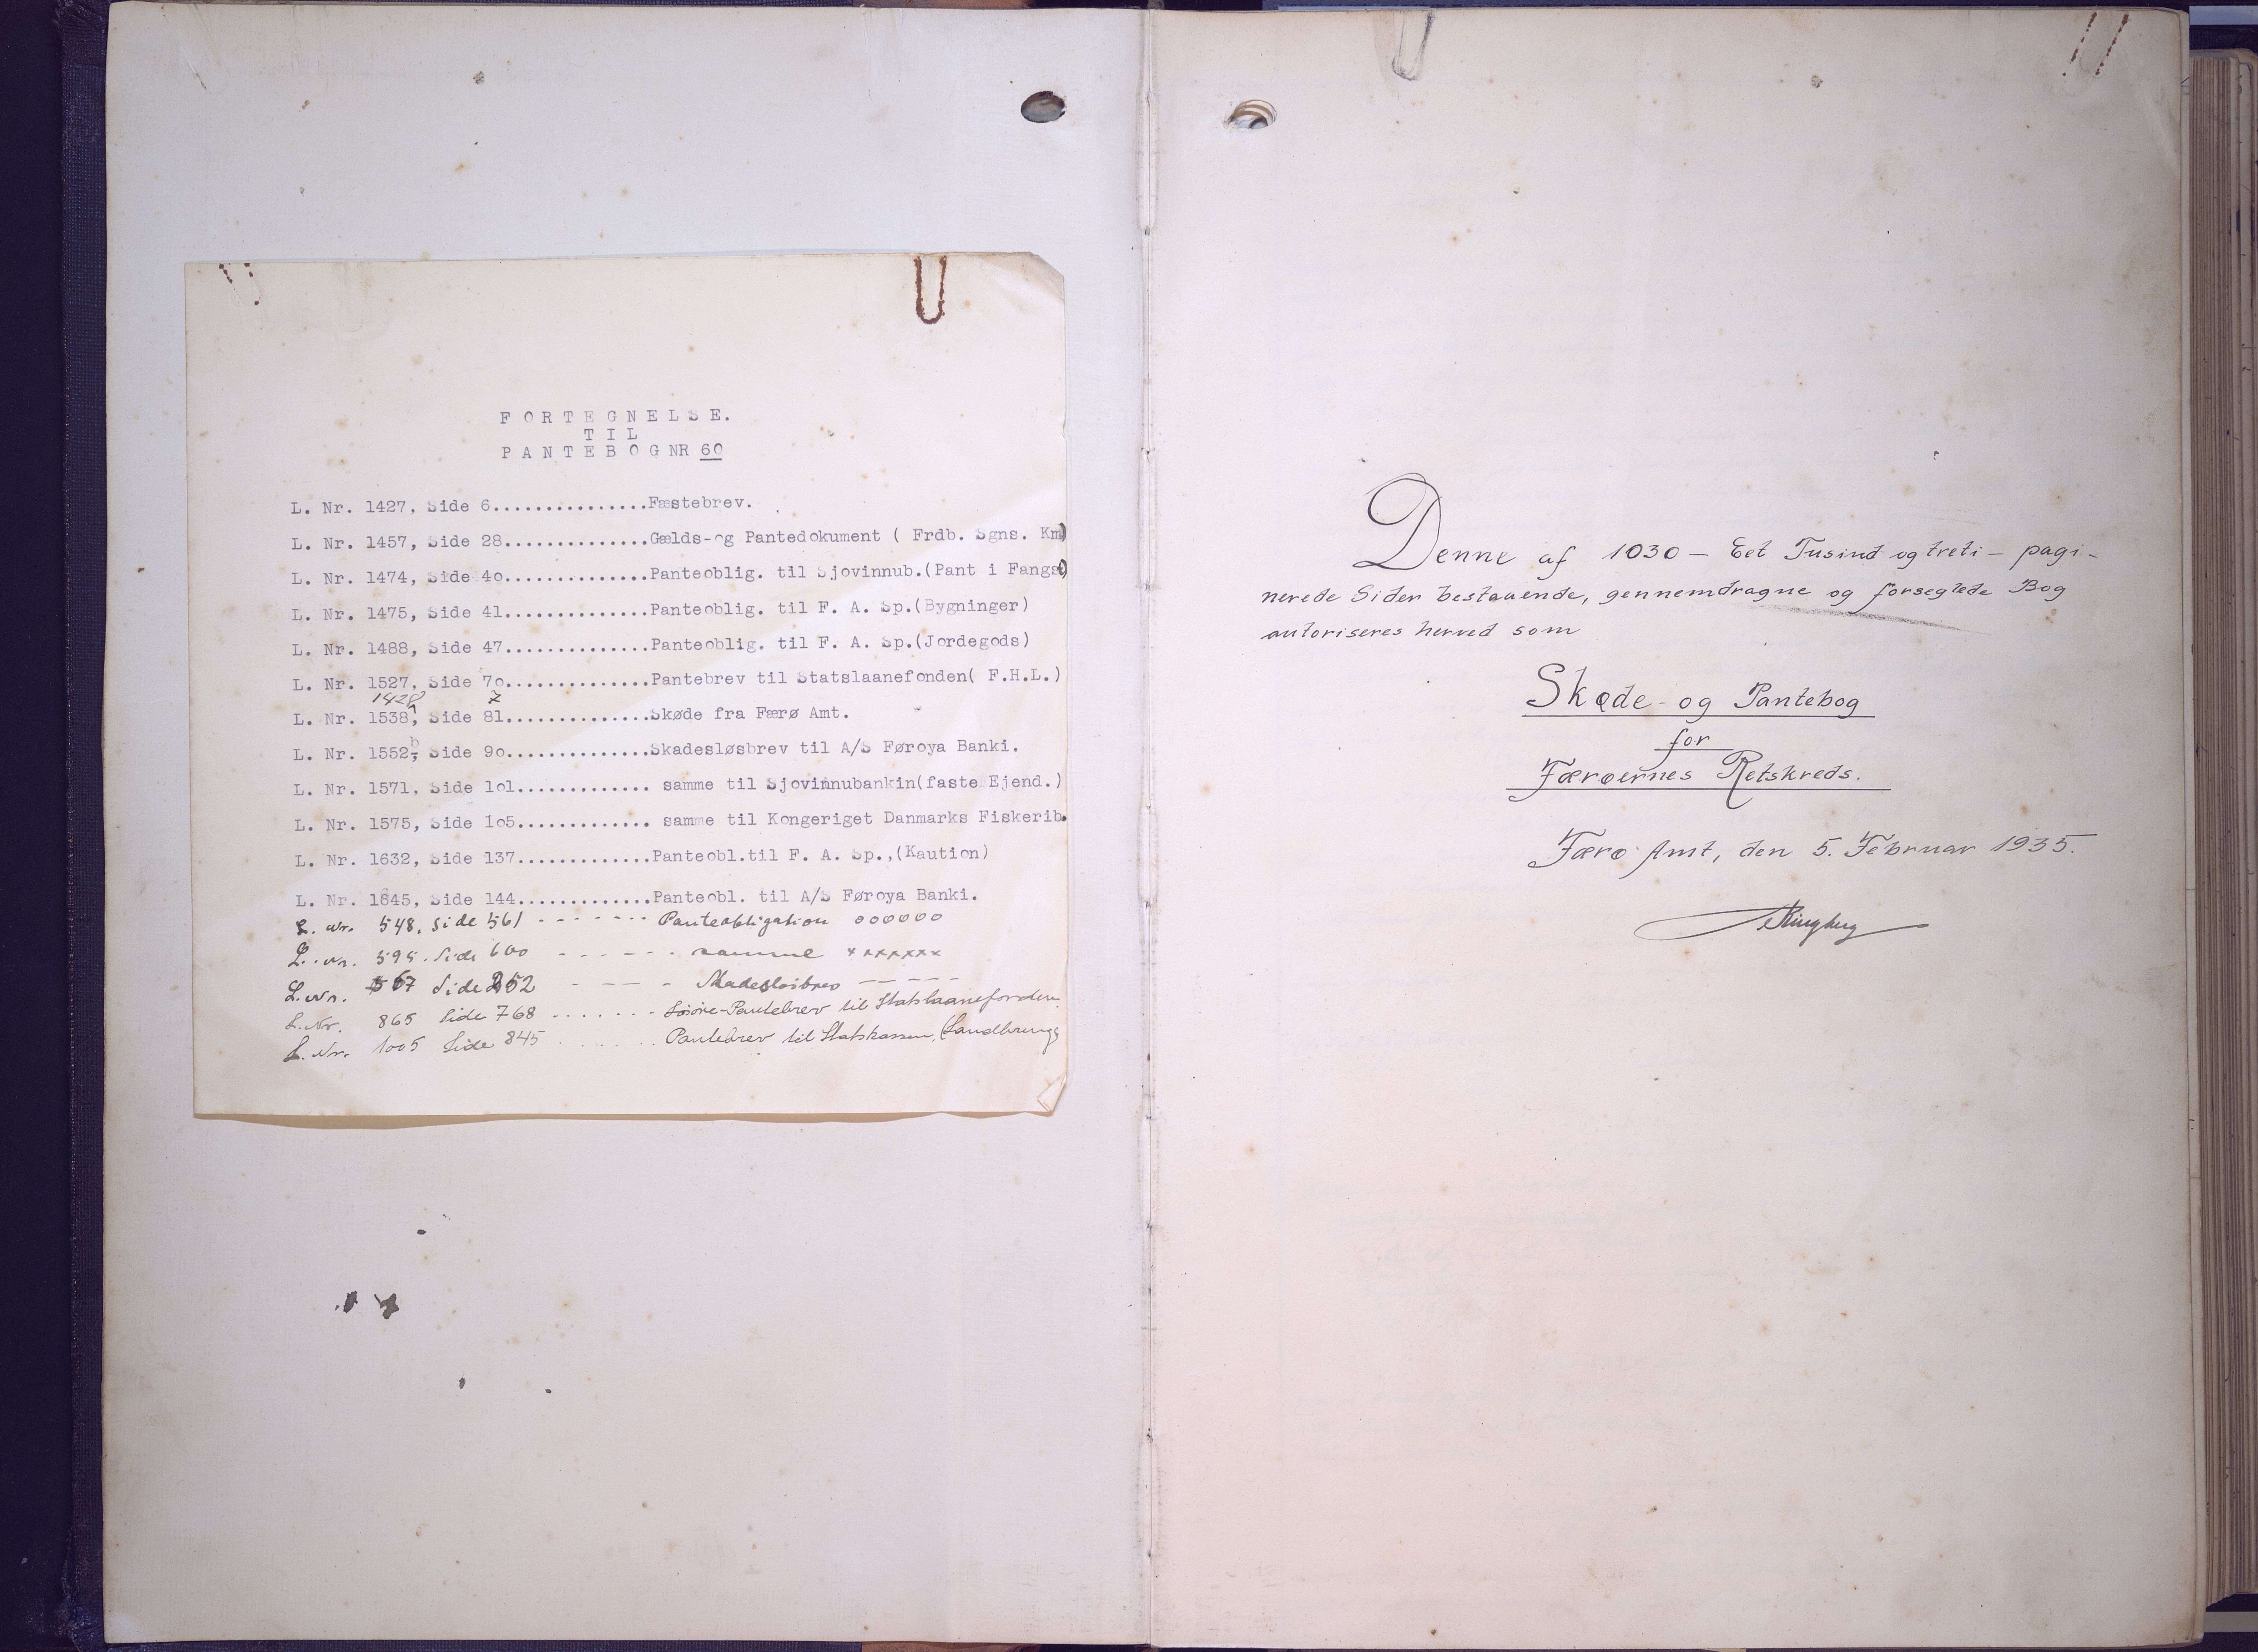 FORTEGNELSE.
TIL
PANTEBOG NR 60
L. Nr. 1427, Side 6...............Fæstebrev.
L. Nr. 1457, Side 28..............Gælds-og Pantedokument ( Frdb. Sgns. Km)
L. Nr. 1474, Side 4o..............Panteoblig. til Sjovinnub.(Pant i Fangst)
L. Nr. 1475, Side 41..............Panteoblig. til F. A. Sp.(Bygninger)
L. Nr. 1488, Side 47..............Panteoblig. til F. A. Sp.(Jordegods)
L. Nr. 1527, Side 7o..............Pantebrev til Statslaanefonden( F.H.L.)
1428 7
L. Nr. 1538, Side 81..............Skøde fra Færø Amt.
L. Nr. 1552b, Side 9o..............Skadesløsbrev til A/S Føroya Banki.
L. Nr. 1571, Side 1o1............. samme til Sjovinnubankin(faste Ejend.)
L. Nr. 1575, Side 1o5............. samme til Kongeriget Danmarks Fiskerib.
L. Nr. 1632, Side 137.............Panteobl.til F. A. Sp.,(Kaution)
L. Nr. 1645, Side 144.............Panteobl. til A/S Føroya Banki.
L. Nr. 548, Side 561 - - - - - - - Panteobligation oooooo
L. Nr. 595. Side 600 - - - - - - samme xxxxxxx
L. Nr. 567 Side 252 - - - - Skadesløsbrev - - - - -
L. Nr. 865 Side 768 . . . . . . . -Pantebrev til Statslaanefonden
L. Nr. 1005 Side 845 . . . . . . Pantebrev til Statskassen, (Landbrugs
Denne af 1030 — Eet Tusind og treti — pagi-
nerede Sider bestaaende, gennemdragne og forseglede Bog
autoriseres herved som
Skøde- og Pantebog
for
Færøernes Retskreds.
Færø Amt, den 5. Februar 1935.
Ringberg